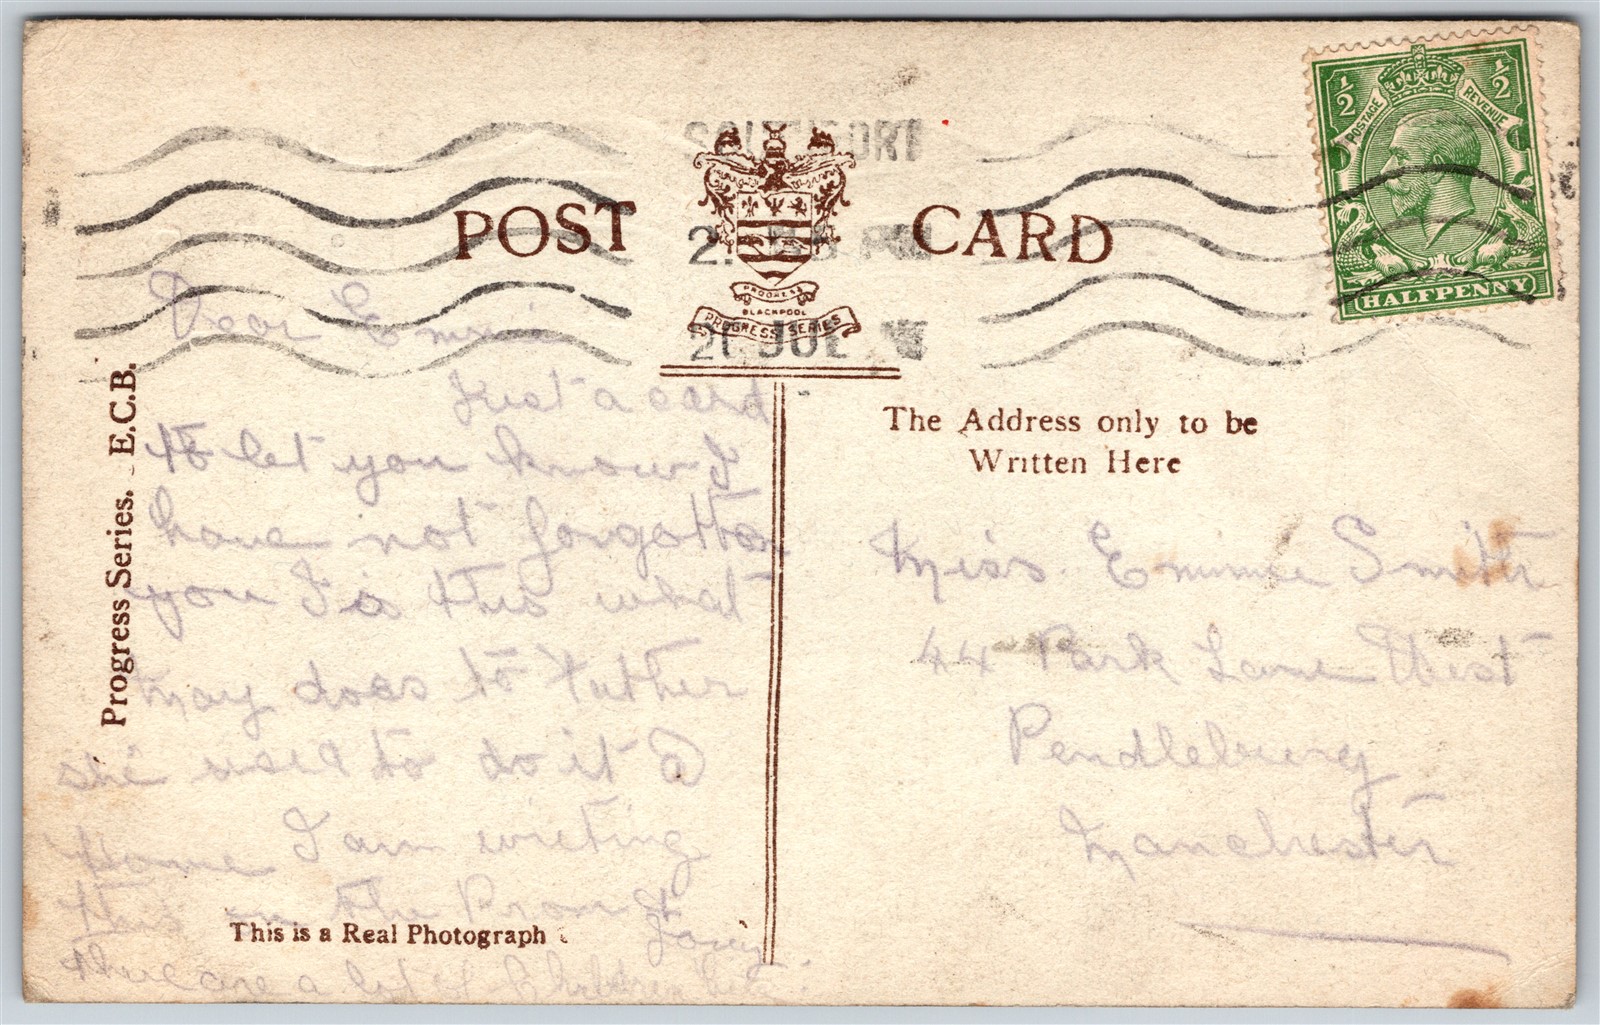 SOUTHPORT
POST CARD
PROGRESS
BLACKPOOL
PROGRESS SERIES
½ ½
POSTAGE REVENUE
HALFPENNY
Progress Series. E.C.B.
Dear Emmie
Just a card
to let you know I
have not forgotten
you I is this what
may does to Father
she used to do it @
Home I am writing
this on the Prom
there are a lot of Children here
This is a Real Photograph
The Address only to be
Written Here
Miss Emmie Smith
44 Park Lane West
Pendlebury
Manchester